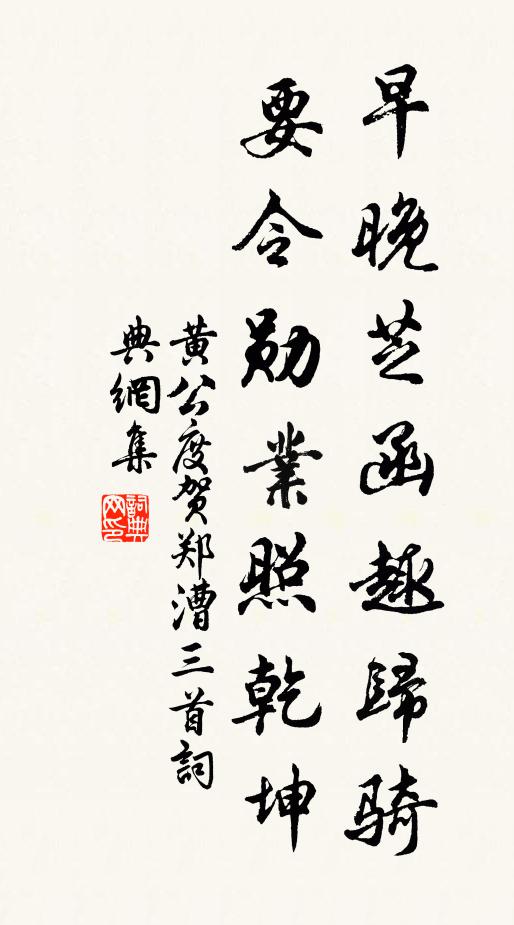 早晚芝函趣歸騎
要令勛業照乾坤
黄公度贺郑漕三首詞
典網集
詞典网印